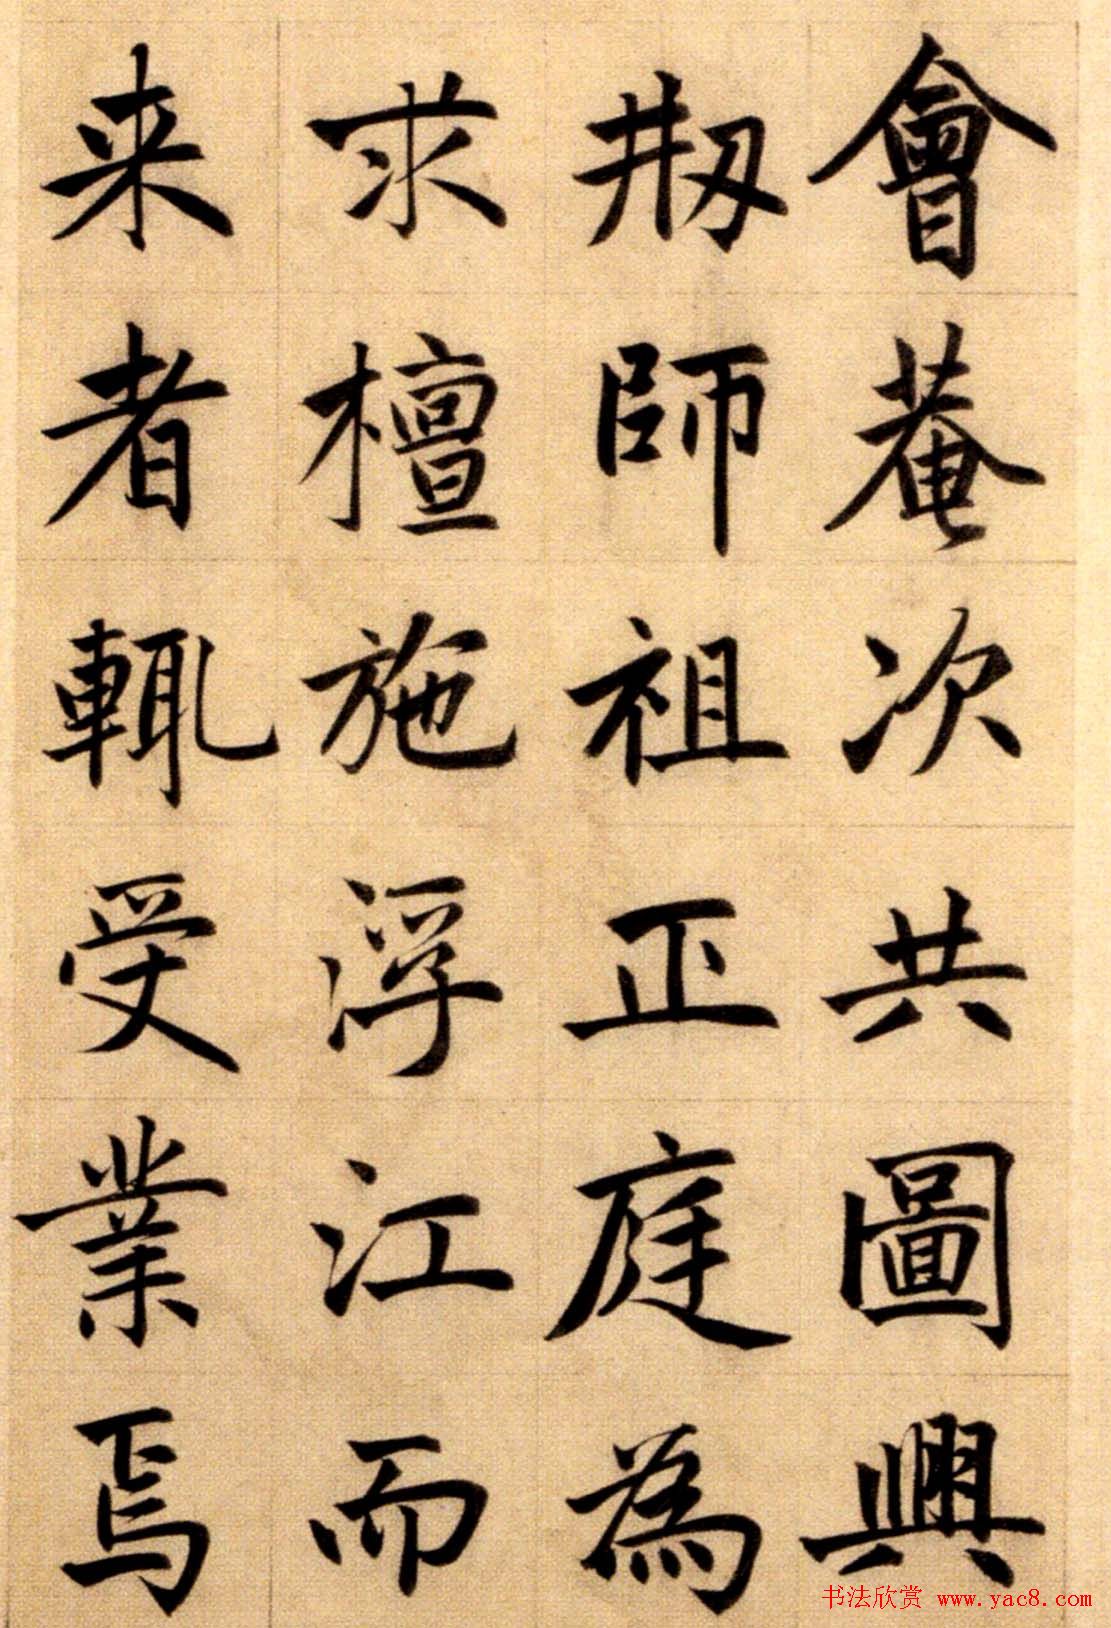 會菴次共圖興
刱師祖正庭為
求檀施浮江而
来者輒受業焉
书法欣赏 www.yac8.com